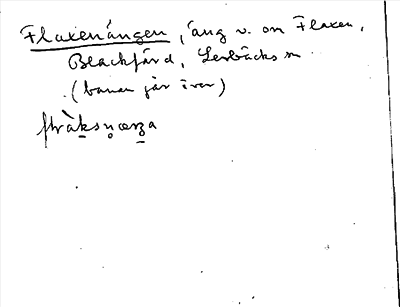 Flaxenängen, äng v. om Flaxen,
Blackfjärd, Lerbäcks sn
(banan går över)